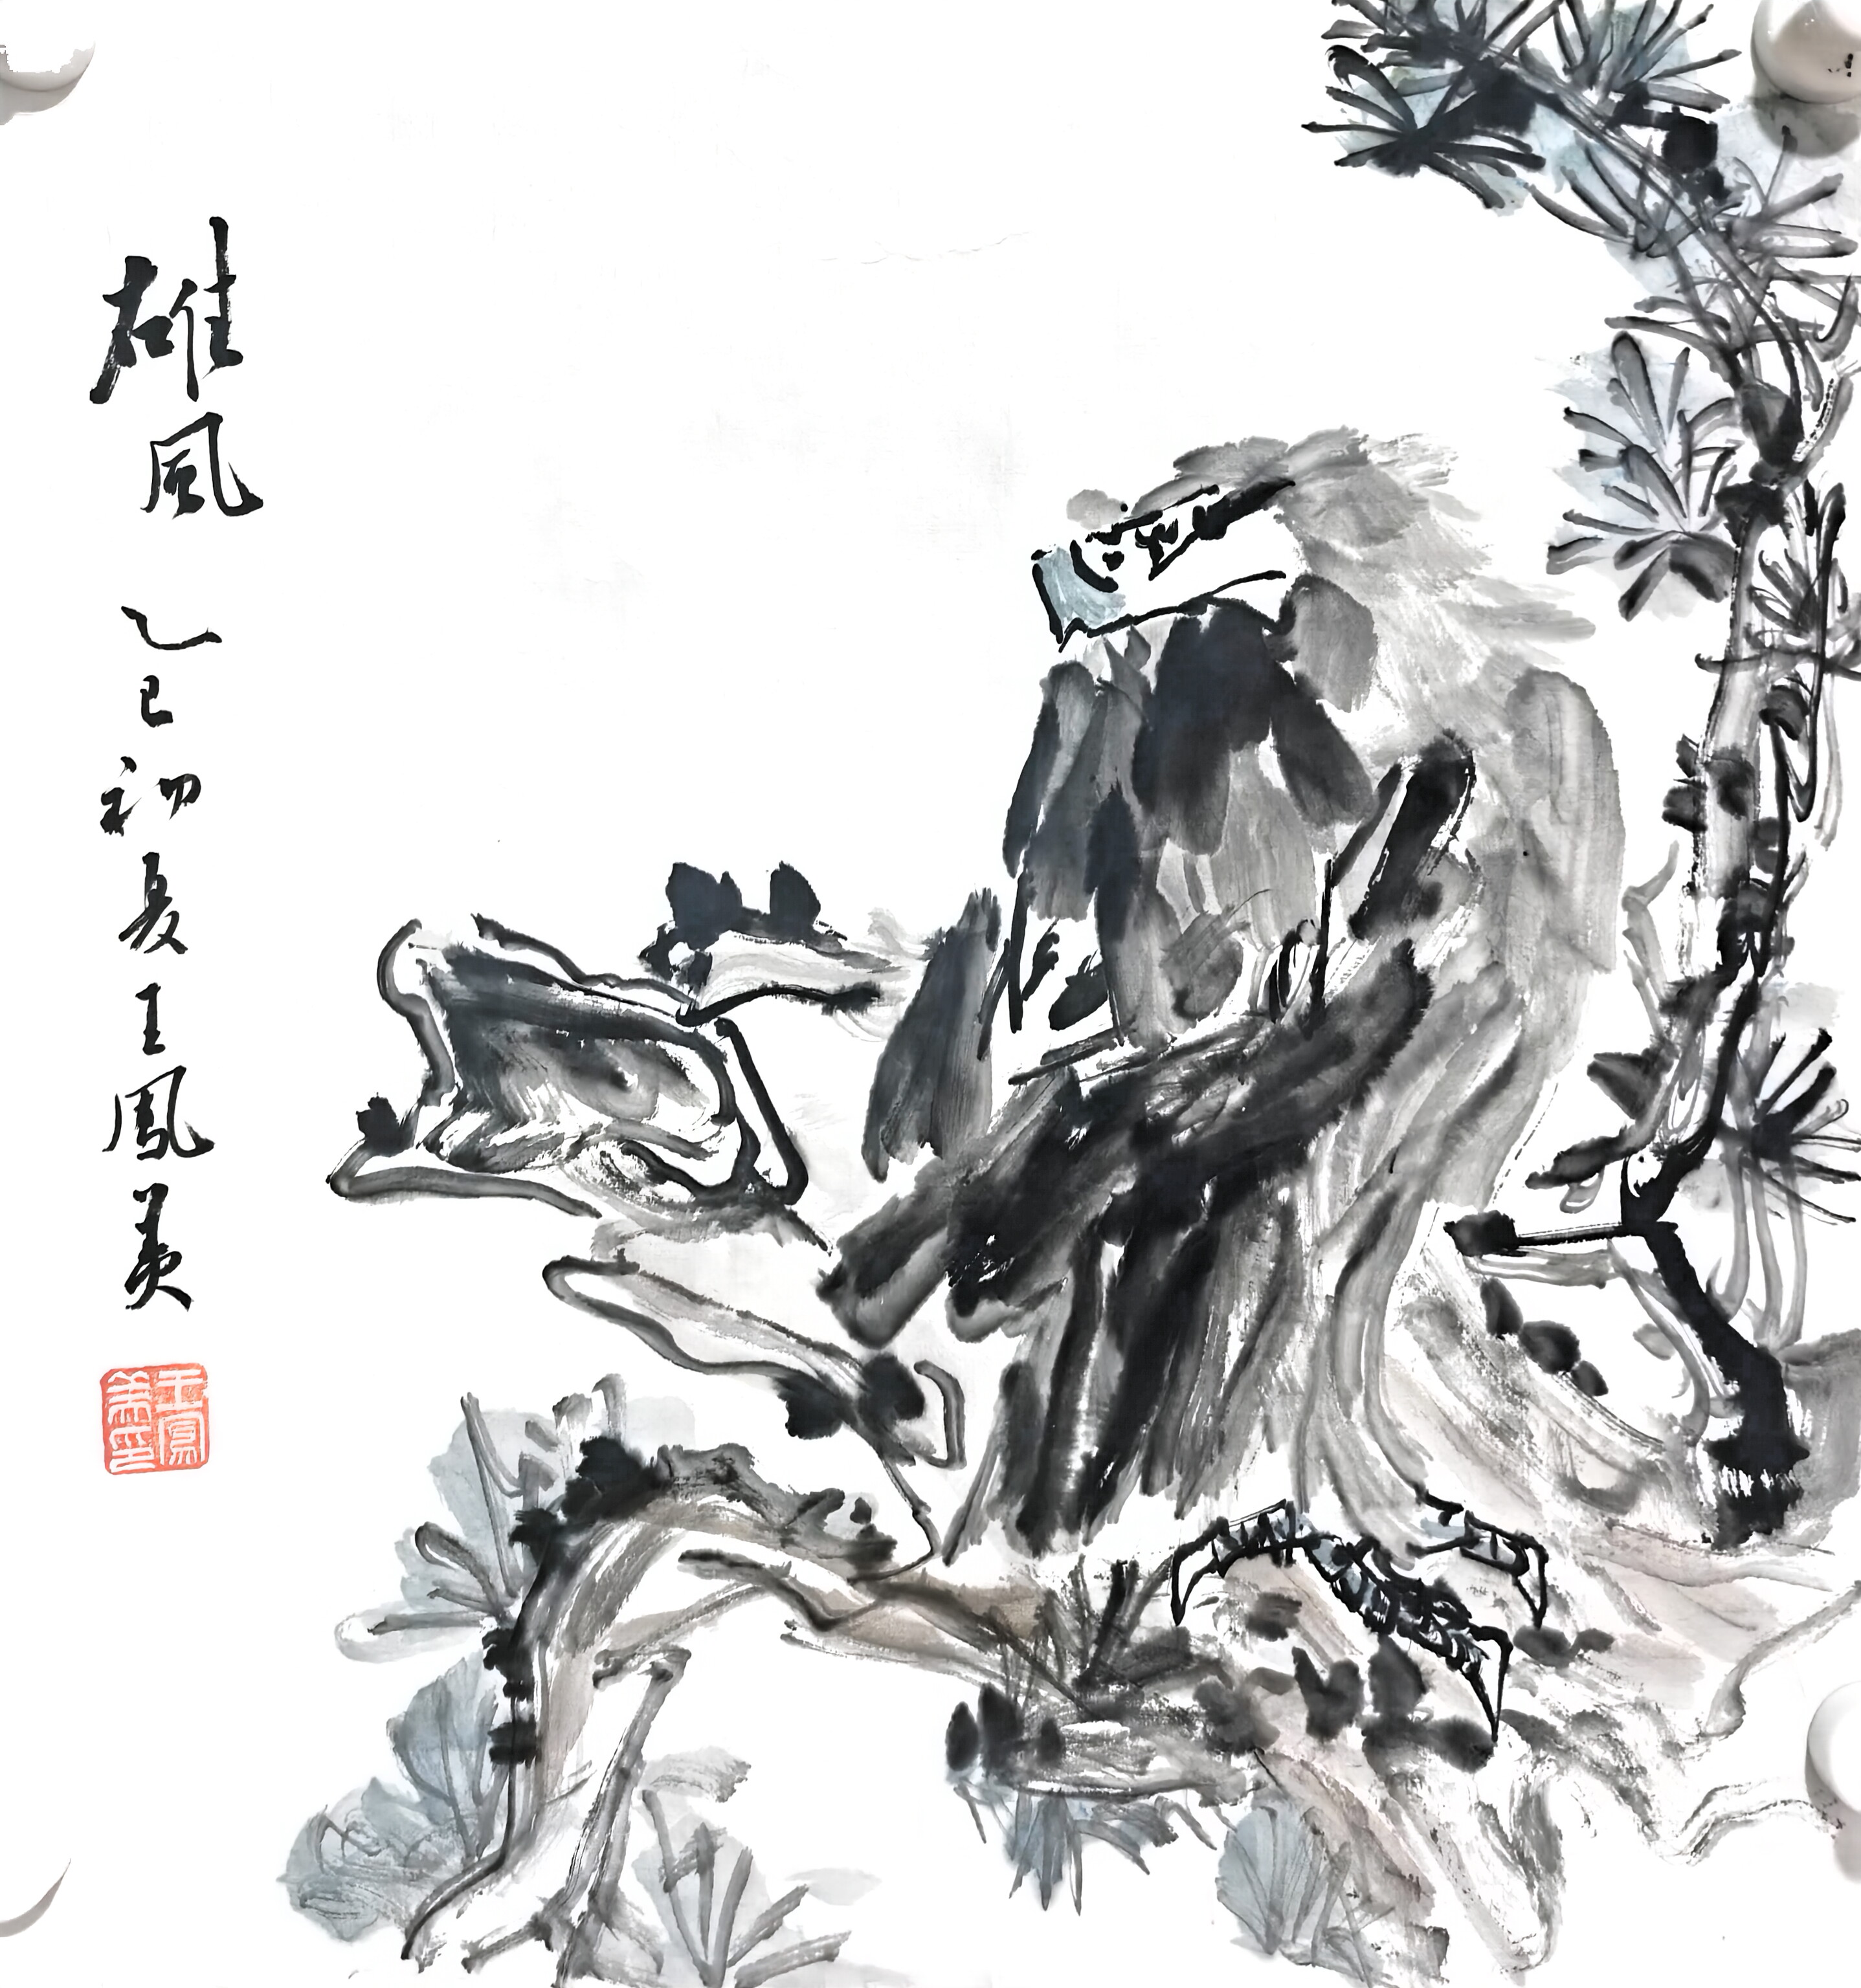 雄風 乙巳初夏王鳳美
王鳳
美印